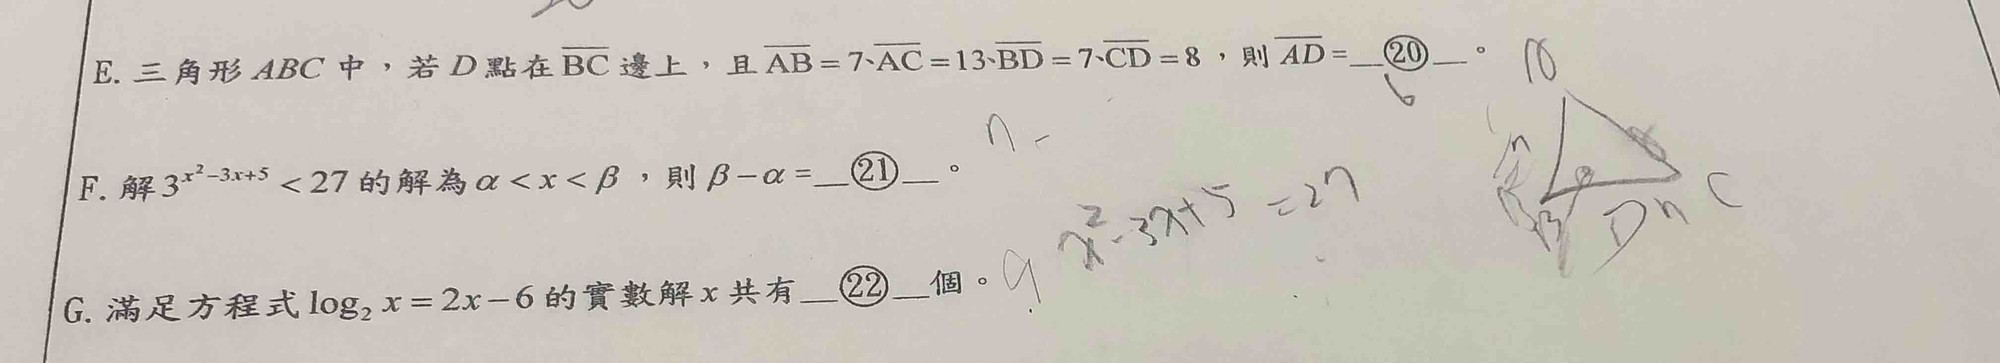 E. 三角形 ABC 中，若 D 點在 BC 邊上，且 AB = 7、AC = 13、BD = 7、CD = 8，則 AD = __⑳__。
6
F. 解 3^{x²-3x+5} < 27 的解為 α < x < β，則 β - α = __㉑__。
x²-3x+5 = 27
G. 滿足方程式 log₂ x = 2x - 6 的實數解 x 共有__㉒__個。
B D C